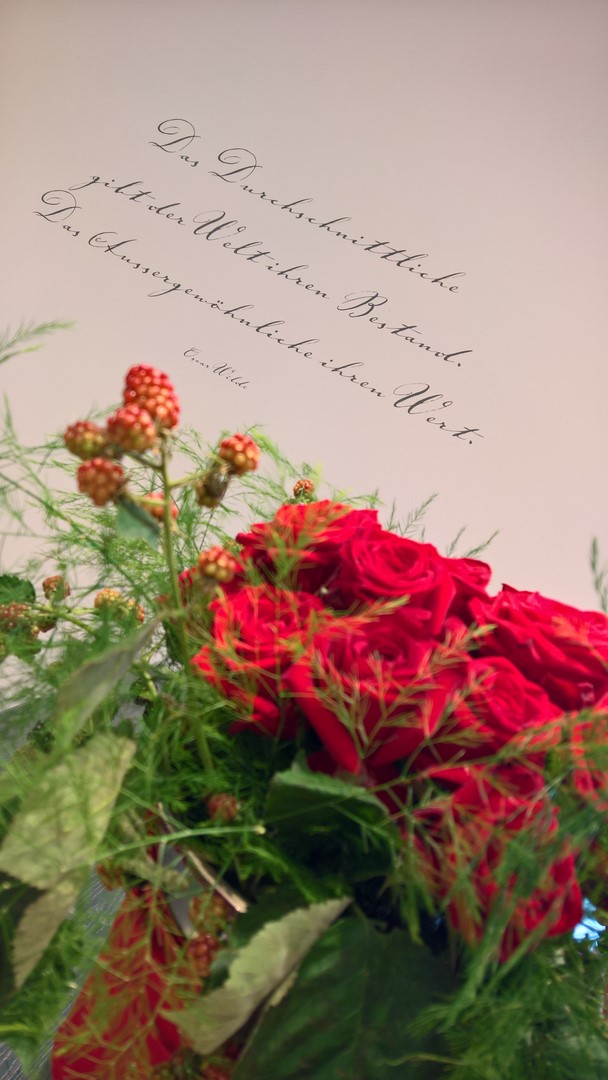 Das Durchschnittliche
gibt der Welt ihren Bestand.
Das Aussergewöhnliche ihren Wert.
Oscar Wilde